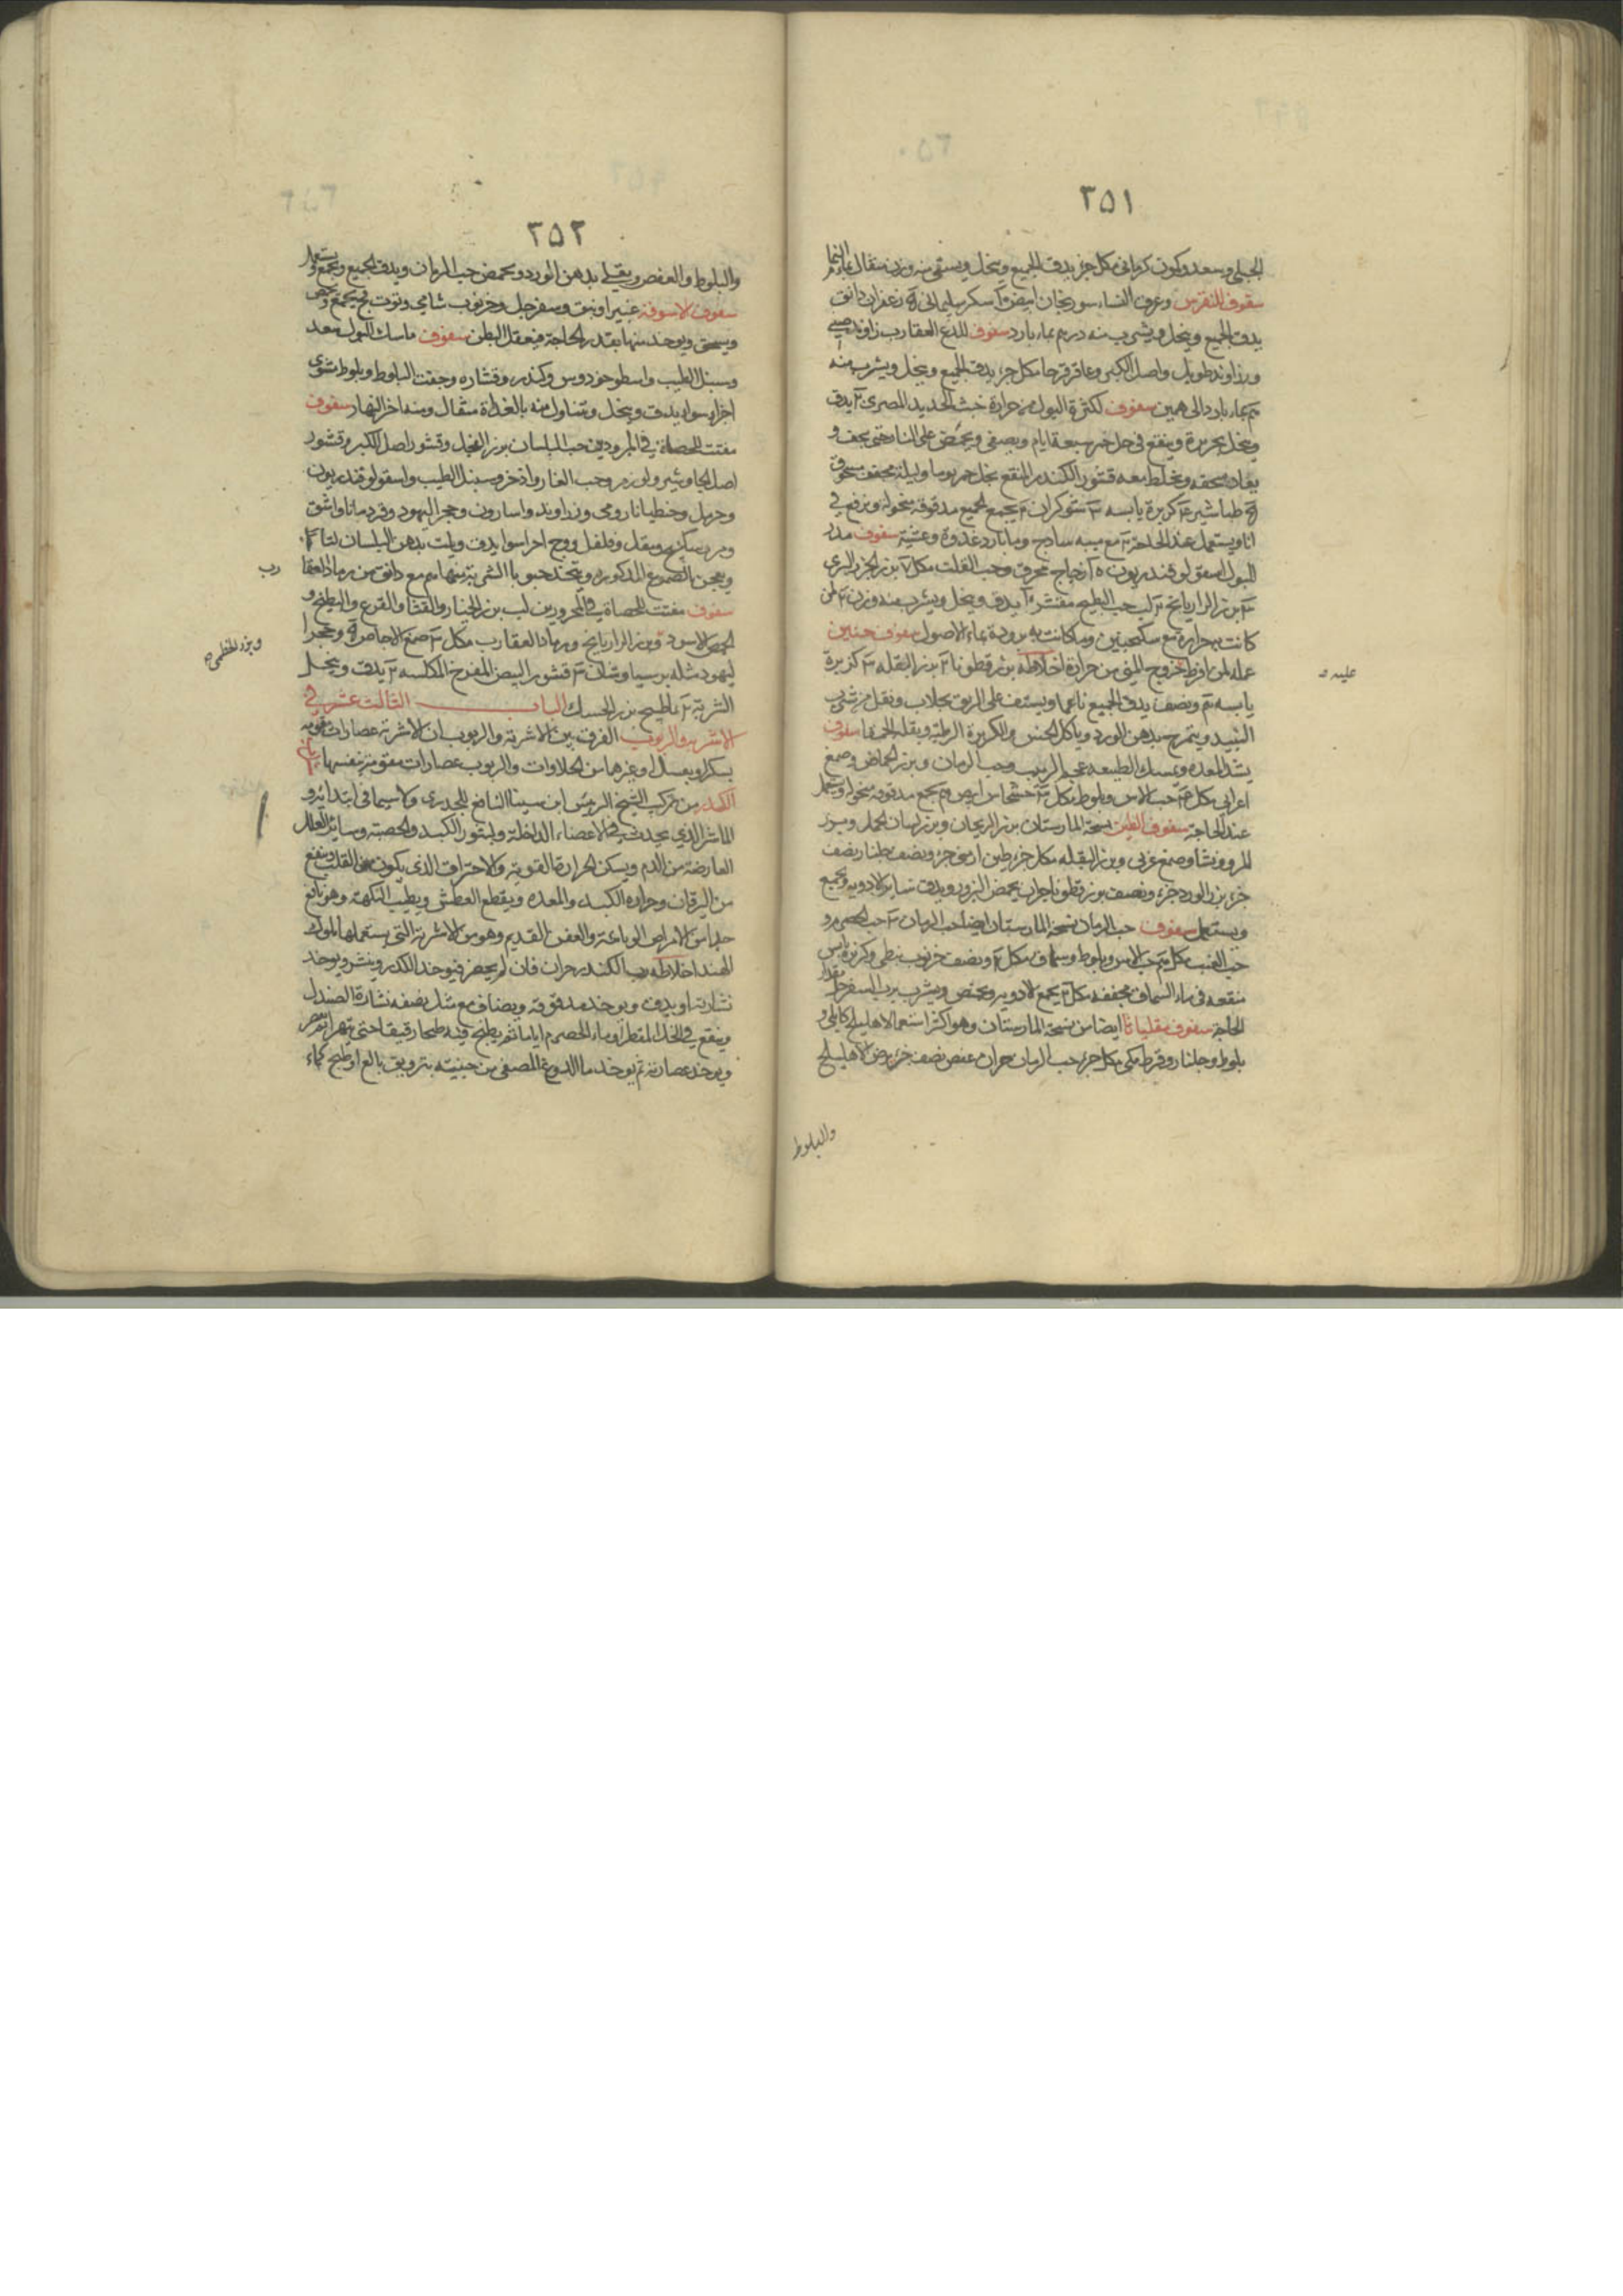 ٣٥١
الجبلي وسعد وكمون كرماني مكل جزء يدق الجميع وينخل ويستقى منه وزن مثقال بماء
سفوف للنقرس وعرق النساء سورنجان ابيض سكر سليماني زعفران دانق
يدق الجميع وينخل ويشرب منه درهم بماء بارد سفوف للدغ العقارب زراوند
وزراوند طويل واصل الكبر وعاقر قرحا مكل جزء يدق الجميع وينخل ويشرب منه
بماء بارد الى همين سفوف لكثرة البول من حرارة خبث الحديد المصرى يدق
وينخل بحريرة وينقع في خل خمر سبعة ايام ويصفى ويحمص على النار حتى يجف و
يعاد سحقه ويخلط معه قشور الكندر المنقع بخل خمر يوما وليلة مجفف مسحوق
طباشير كزبرة يابسه شوكران يجمع الجميع مدقوقه منخولة وترفع في
انا ويستعمل عند الحاجة مع ميبه ساذج وماء بارد غدوة وعشية سفوف مدر
للبول اسقولوقندريون زجاج محرق وحب القلت مكل بزر الجزر البرى
بزر الرازيانج لب حب البطيخ مقشر يدق وينخل ويشرب منه وزن
كانت بحراره مع سكنجبين وما كانت به برودة بماء الاصول سفوف حنين
عمله لمن افرط خروج المنى من حرارة اخلاطه بزر قطونا بزر البقله كزبرة
عليه
يابسه ونصف يدق الجميع ناعما ويستف على الريق بجلاب ونقل من شرب
النبيذ ويتمرخ بدهن الورد وياكل الخس والكزبرة الرطبة وبقلة الحمقا سفوف
يشد المعده ويمسك الطبيعه عجم الزبيب وحب الرمان وبزر الحماض وصمغ
اعرابي مكل حب الاس وبلوط مكل خشخاش ابيض يجمع مدقوقه منخولة ويستعمل
عند الحاجة سفوف الطين نسخة المارستان بزر الريحان وبزر لسان الحمل وبزر
المرو ونشا وصمغ عربى وبزر البقله مكل جزء طين ارمنى جزء ونصف جلنار نصف
جزء بزر الورد جزء ونصف بزر قطونا جزان يحمص البزور ويدق سائر الادويه ويجمع
ويستعمل سفوف حب الرمان نسخة المارستان ايضا حب الرمان
حب العنب مكل حب الاس وبلوط وسماق مكل ونصف خرنوب نبطى وكزبرة يابس
منقعه في ماء السماق مجففه مكل يجمع الادويه ويحمص ويشرب برب السفرجل بقدر
الحاجة سفوف مقلياثا ايضا من نسخة المارستان وهو اكثر استعمالا هليلج كابلى و
بلوط وجلنار وقرط مكى مكل جزء حب الرمان جزان عفص نصف جزء يرض الاهليلج
والبلوط
٣٥٢
والبلوط والعفص ويقلى بدهن الورد ويحمص حب الرمان ويدق الجميع ويجمع ويستعمل
سفوف الاسوقة غبيرا ونبق وسفرجل وخرنوب شامي وتوت فج يجمع
ويسحق ويوخذ منها بقدر الحاجة فيعقل البطن سفوف ماسك للبول سعد
وسنبل الطيب واسطوخودوس وكندر وقشاره وجفت البلوط وبلوط مشوى
اجزا سوا يدق وينخل ويتناول منه بالغداة مثقال ومنه اخر النهار سفوف
مفتت للحصاة في المبرودين حب البلسان بزر الفجل وقشور اصل الكبر وقشور
اصل الجاوشير ولوز مر وحب الغار واذخر وسنبل الطيب واسقولوقندريون
وحرمل وجنطيانا رومى وزراوند واسارون وحجر اليهود وقردمانا واشق
ومر وسكبينج ومقل وفلفل ووج اجزا سوا يدق ويلت بدهن البلسان لتا
ويعجن بالصموغ المذكوره ويتخذ حبوبا الشربة منها مع دانق من رماد العقا
رب
سفوف مفتت للحصاة في المحرورين لب بزر الخيار والقثا والقرع والبطيخ و
الحمص الاسود وبزر الرازيانج ورماد العقارب مكل صمغ الاجاص وحجرا
وبزر الخطمى
ليهود مثله برسياوشان قشور البيض المفرخ المكلسه يدق وينخل
الشربة بماطبيخ بزر الحسك الباب الثالث عشر في
الاشربة والربوب الفرق بين الاشربة والربوب ان الاشربة عصارات مقومة
بسكر او بعسل او غيرها من الحلاوات والربوب عصارات مقومة بنفسها
الكدر من تركيب الشيخ الرئيس ابن سينا النافع للجدرى ولاسيما في ابتدائه و
الماشرا الذي يحدث في الاعضاء الداخلة ولبثور الكبد والحصبة وسائر العلل
العارضة من الدم ويسكن الحرارة القوية والاحتراق الذي يكون في القلب وينفع
من اليرقان وحرارة الكبد والمعده ويقطع العطش ويطيب النكهة وهو نافع
جدا من الامراض الوبائية والعفن القديم وهو من الاشربة التي يستعملها ملوك
الهند اخلاطه رب الكندر جزان فان لم يحضر فيوخذ الكدر وينشر ويوخذ
نشارته او يدق ويوخذ مدقوقه ويضاف مع مثل نصفه نشارة الصندل
وينقع في الخل المقطر او ماء الحصرم اياما ثم يطبخ فيه طبخا رقيقا حتى يتهرا ثم يعصر
ويوخذ عصارته ثم يوخذ ماء الدوغ المصفى من جبنيته بترويق بالغ او طبخ كماء